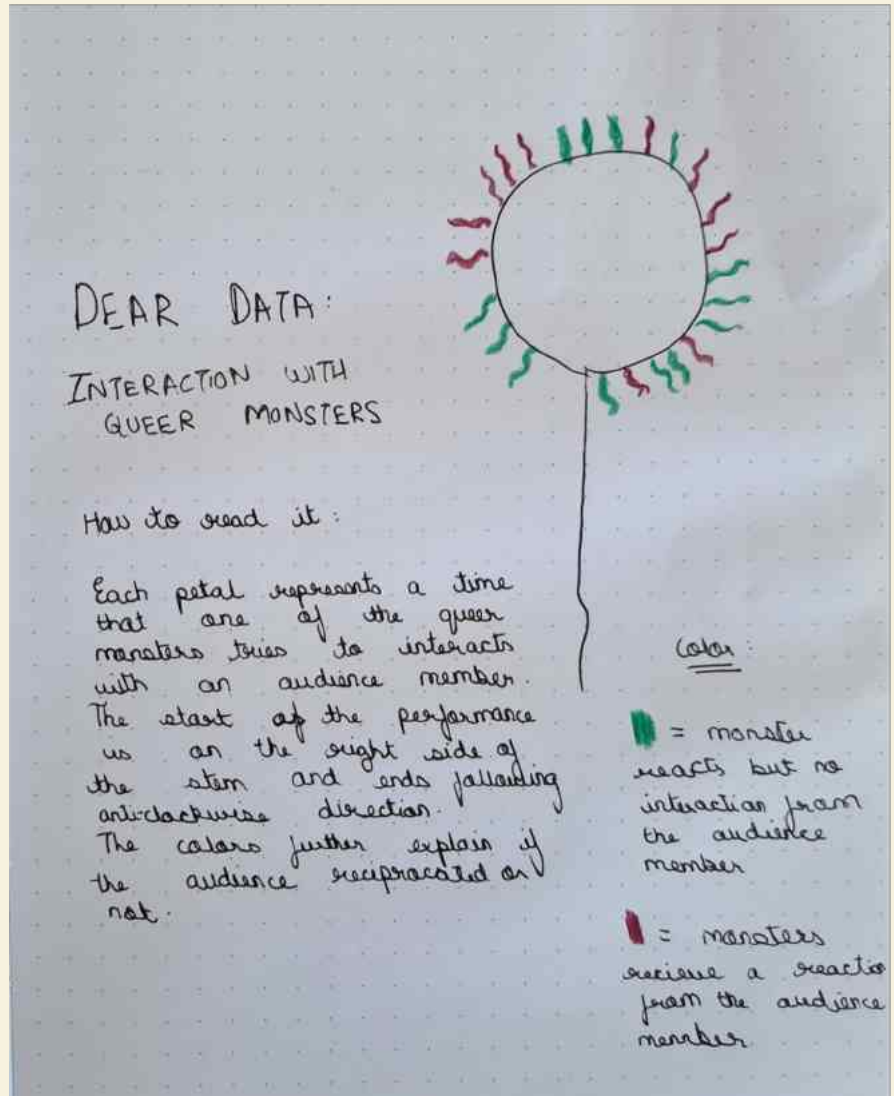 DEAR DATA:
INTERACTION WITH
QUEER MONSTERS
How to read it:
Each petal represents a time
that one of the queer
monsters tries to interacts
with an audience member.
The start of the performance
us on the right side of
the stem and ends following
anti-clockwise direction.
The colors further explain if
the audience reciprocated or
not.
Color:
= monster
reacts but no
interaction from
the audience
member
= monsters
recieve a reactio
from the audience
member